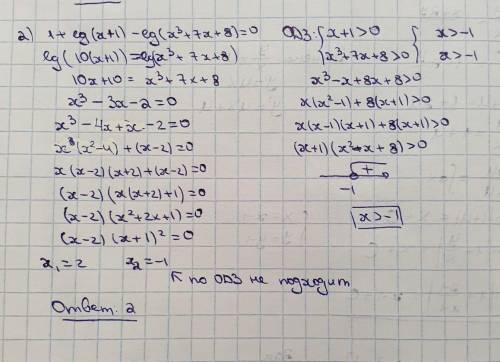 2) 1+lg(x+1)-lg(x³+7x+8)=0
lg(10(x+1))=lg(x³+7x+8)
10x+10 = x³+7x+8
x³-3x-2=0
x³-4x+x-2=0
x³(x²-4)+(x-2)=0
x(x-2)(x+2)+(x-2)=0
(x-2)(x(x+2)+1)=0
(x-2)(x²+2x+1)=0
(x-2)(x+1)²=0
x₁=2 x₂=-1
↖ по ОДЗ не подходит
Ответ. 2
ОДЗ: { x+1>0 { x>-1
{ x³+7x+8>0 { x>-1
x³-x+8x+8>0
x(x²-1)+8(x+1)>0
x(x-1)(x+1)+8(x+1)>0
(x+1)(x²-x+8)>0
+
-1
x>-1